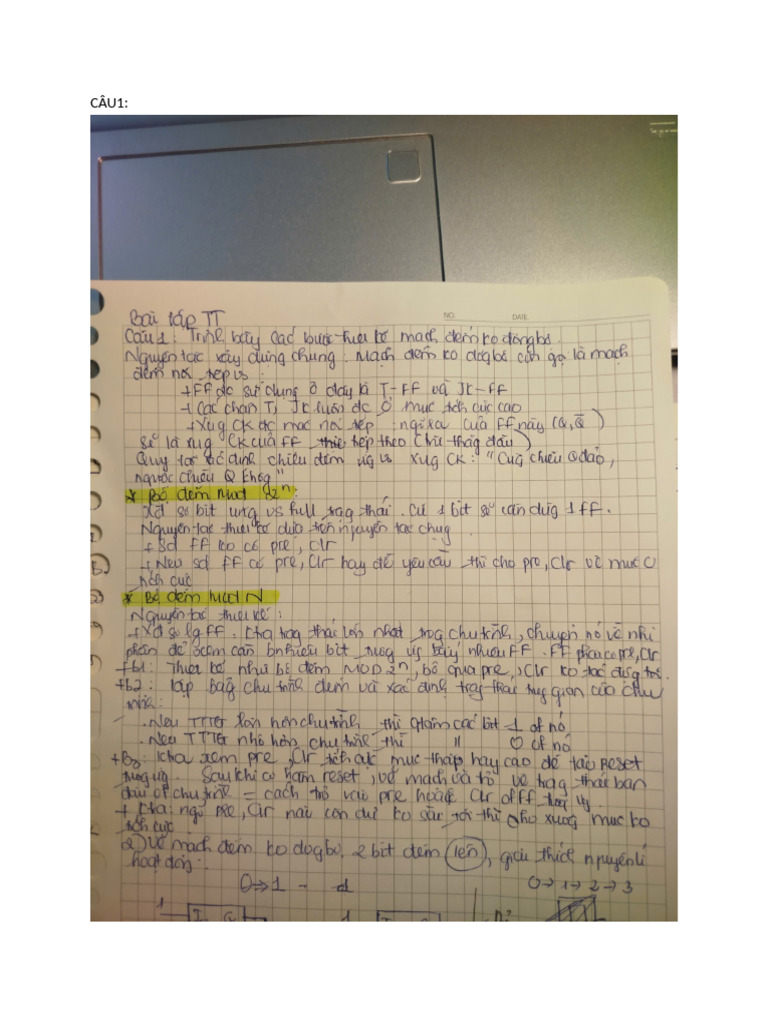 CÂU1:
NO. DATE.
Bài tập TT
Câu 1: Trình bày các bước thiết kế mạch đếm ko đồng bộ.
Nguyên tắc xây dựng chung. Mạch đếm ko đồg bộ còn gọi là mạch
đếm nối tiếp vs:
+ FF đc sử dụng ở đây là T-FF và JK-FF
+ Các chân T, JK luôn đc ở mức tích cực cao
+ Xug CK đc mắc nối tiếp: ngõ ra của FF này (Q, Q̄)
sẽ là xug CK của FF tiếp theo
Quy tắc xác định chiều đếm vs xug CK: "Cùg chiều Q đảo,
ngược chiều Q khôg"
* Bộ đếm Mod 2ⁿ:
Xđ số bit ưng vs full trạg thái. Cứ 1 bit sẽ cần dùg 1 FF.
Nguyên tắc thiết kế dựa trên nguyên tắc chug
+ Sd FF ko có pre, clr
+ Nếu sd FF có pre, Clr hay đề yêu cầu thì cho pre, Clr về mức 0
tích cực
* Bộ đếm Mod N
Nguyên tắc thiết kế:
+ Xđ số lg FF. Ktra trạg thái lớn nhất trog chu trình, chuyển nó về nhị
phân để xem cần bnhiêu bit vs bấy nhiêu FF. FF phải có pre, Clr
+ b1: Thiết kế như bộ đếm MOD 2ⁿ, bỏ qua pre, Clr ko tác độg
+ b2: lập bảg chu trình đếm và xác định trạg thái trug gian của chu
trình:
. Nếu TTTG lớn hơn chu trình thì qtâm các bit 1 of nó
. Nếu TTTG nhỏ hơn chu trình thì " 0 of nó
+ B3: ktra xem pre, Clr tích cực mức thấp hay cao để tạo Reset
Sau khi có hàm reset, vẽ mạch và trở về trạg thái ban
đầu of chu trình = cách trỏ vào pre hoặc Clr of FF
+ Ktra: ngõ pre, Clr nào còn dư ko sd tới thì cho xuốg mức ko
tích cực
2) Vẽ mạch đếm ko đồg bộ, 2 bit đếm lên, giải thích nguyên lí
hoạt độg:
0→1 0→1→2→3
1 1